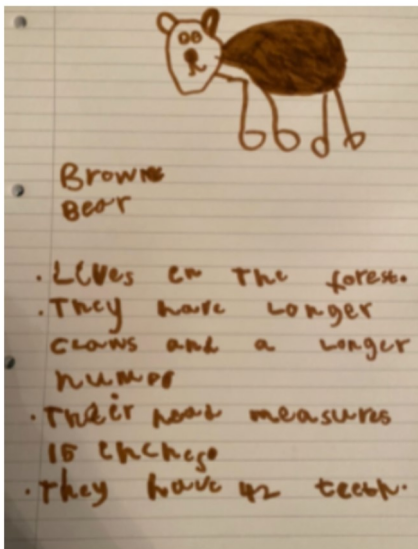 Brown
Bear
. Lives in the forest.
. They have longer
claws and a longer
. Their head measures
16 inches
. They have 42 teeth.